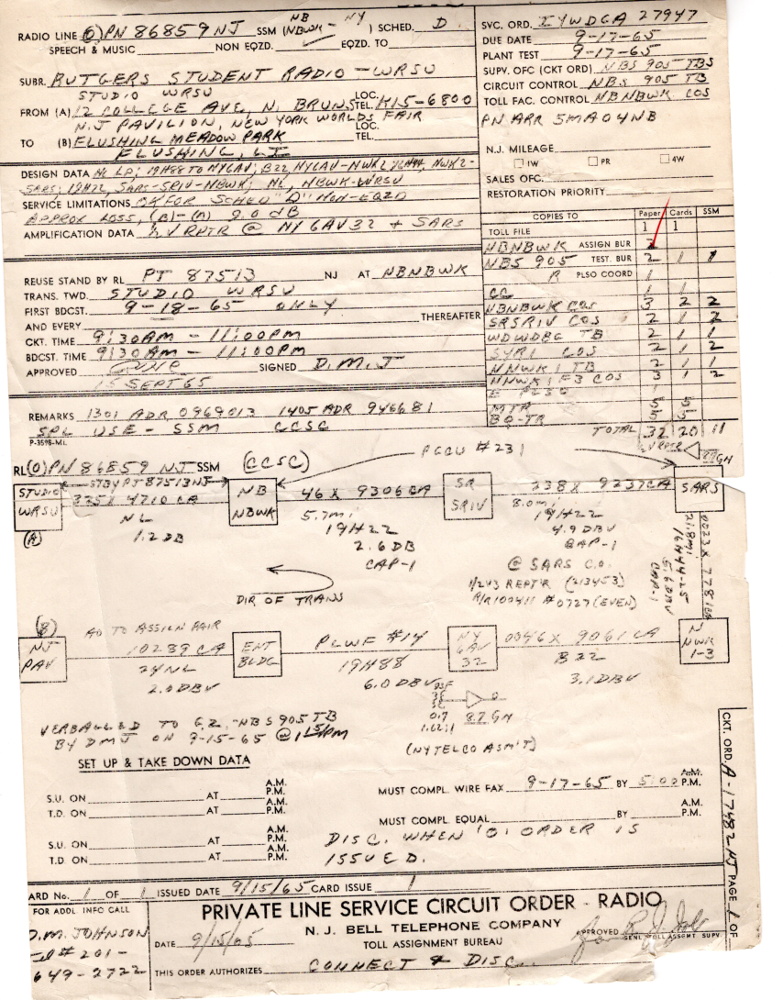 RADIO LINE (O) PN 86859 NJ SSM (NB NBWK - NY) SCHED. D.
SPEECH & MUSIC NON EQZD. ✓ EQZD. TO
SUBR. RUTGERS STUDENT RADIO - WRSU
STUDIO WRSU LOC.
FROM (A) 12 COLLEGE AVE, N. BRUNS TEL. K15-6800
N.J. PAVILION, NEW YORK WORLDS FAIR LOC.
TO (B) FLUSHING MEADOW PARK TEL.
FLUSHING, L.I.
SVC. ORD. IYWDGA 27947
DUE DATE 9-17-65
PLANT TEST 9-17-65
SUPV. OF (CKT ORD) NBS 905 TBS
CIRCUIT CONTROL NBS 905 TB
TOLL FAC. CONTROL NBNBWK COS
PN ARR 5MA04NB
N.J. MILEAGE
1W PR 4W
SALES OFC.
RESTORATION PRIORITY
DESIGN DATA NL LP; 19H88 TO NYGAV; B22, NYGAV-NWK2
SARS; 19H22, SARS-SRIV-NBWK; NL, NBWK-WRSU
SERVICE LIMITATIONS OK FOR SCHED "D" NON-EQZD
APPROX LOSS, (B)-(A) 9.0 dB
AMPLIFICATION DATA V RPTR @ NY GAV32 + SARS
COPIES TO Paper Cards SSM
TOLL FILE 1 1
NBNBWK ASSIGN BUR
NBS 905 TEST. BUR 2 1 1
R PLSO COORD 1
CC 1
NBNBWK COS 3 2 2
SRSRIV COS 2 1 2
WDWDBG TB 2 1 1
SYR1 COS 2 1 2
NNWK1 TB 2 1 1
NNWK1F3 COS 3 1 2
MTR 5 5
BQ-TR 5 5
TOTAL 32 20 11
REUSE STAND BY RL PT 87513 NJ AT NBNBWK
TRANS. TWD. STUDIO WRSU
FIRST BDCST. 9-18-65 ONLY
AND EVERY THEREAFTER
CKT. TIME 9:30AM - 11:00PM
BDCST. TIME 9:30AM - 11:00PM
APPROVED SIGNED D.M.J
15 SEPT 65
REMARKS 1301 ADR 0969013 1405 ADR 946681
SPL USE - SSM CCSC
P-3598-ML
RL (O) PN 86859 NJ SSM (CCSC) PGCU #231
STUDIO WRSU (A)
STBY PT 87513NJ
335X 4710 CA
NL
1.2 DB
NB NBWK
46X 9306 CA
5.7mi
19H22
2.6 DB
CAP-1
SR SRIV
238X 9237 CA
8.0mi
19H22
4.9 DBV
CAP-1
SARS
@ SARS C.O.
1/2 V3 REPT'R (213453)
R/R100411 #0727 (EVEN)
DIR OF TRANS
(B)
NJ PAV
AO TO ASSIGN PAIR
10239 CA
24NL
2.0 DBV
ENT BLDG
PLWF #14
19H88
6.0 DBV
NY GAV 32
0046X 9061 CA
B22
3.1 DBV
N NWK 1-3
(NYTELCO ASM'T)
VERBALLED TO G.Z. -NBS905TB
BY DMJ ON 9-15-65 @
SET UP & TAKE DOWN DATA
S.U. ON AT A.M. P.M.
T.D. ON AT A.M. P.M.
S.U. ON AT A.M. P.M.
T.D. ON AT A.M. P.M.
MUST COMPL. WIRE FAX 9-17-65 BY 5:00 A.M. P.M.
MUST COMPL. EQUAL. BY A.M. P.M.
DISC. WHEN 'O' ORDER IS
ISSUED.
CKT. ORD. A-17482 NJ PAGE 1 OF
ARD No. 1 OF 1 ISSUED DATE 9/15/65 CARD ISSUE 1
FOR ADDL INFO CALL
D.M. JOHNSON
201-
649-2722
PRIVATE LINE SERVICE CIRCUIT ORDER - RADIO
N. J. BELL TELEPHONE COMPANY
DATE 9/15/65 TOLL ASSIGNMENT BUREAU APPROVED
GENL TOLL ASSGMT SUPV
THIS ORDER AUTHORIZES CONNECT & DISC.